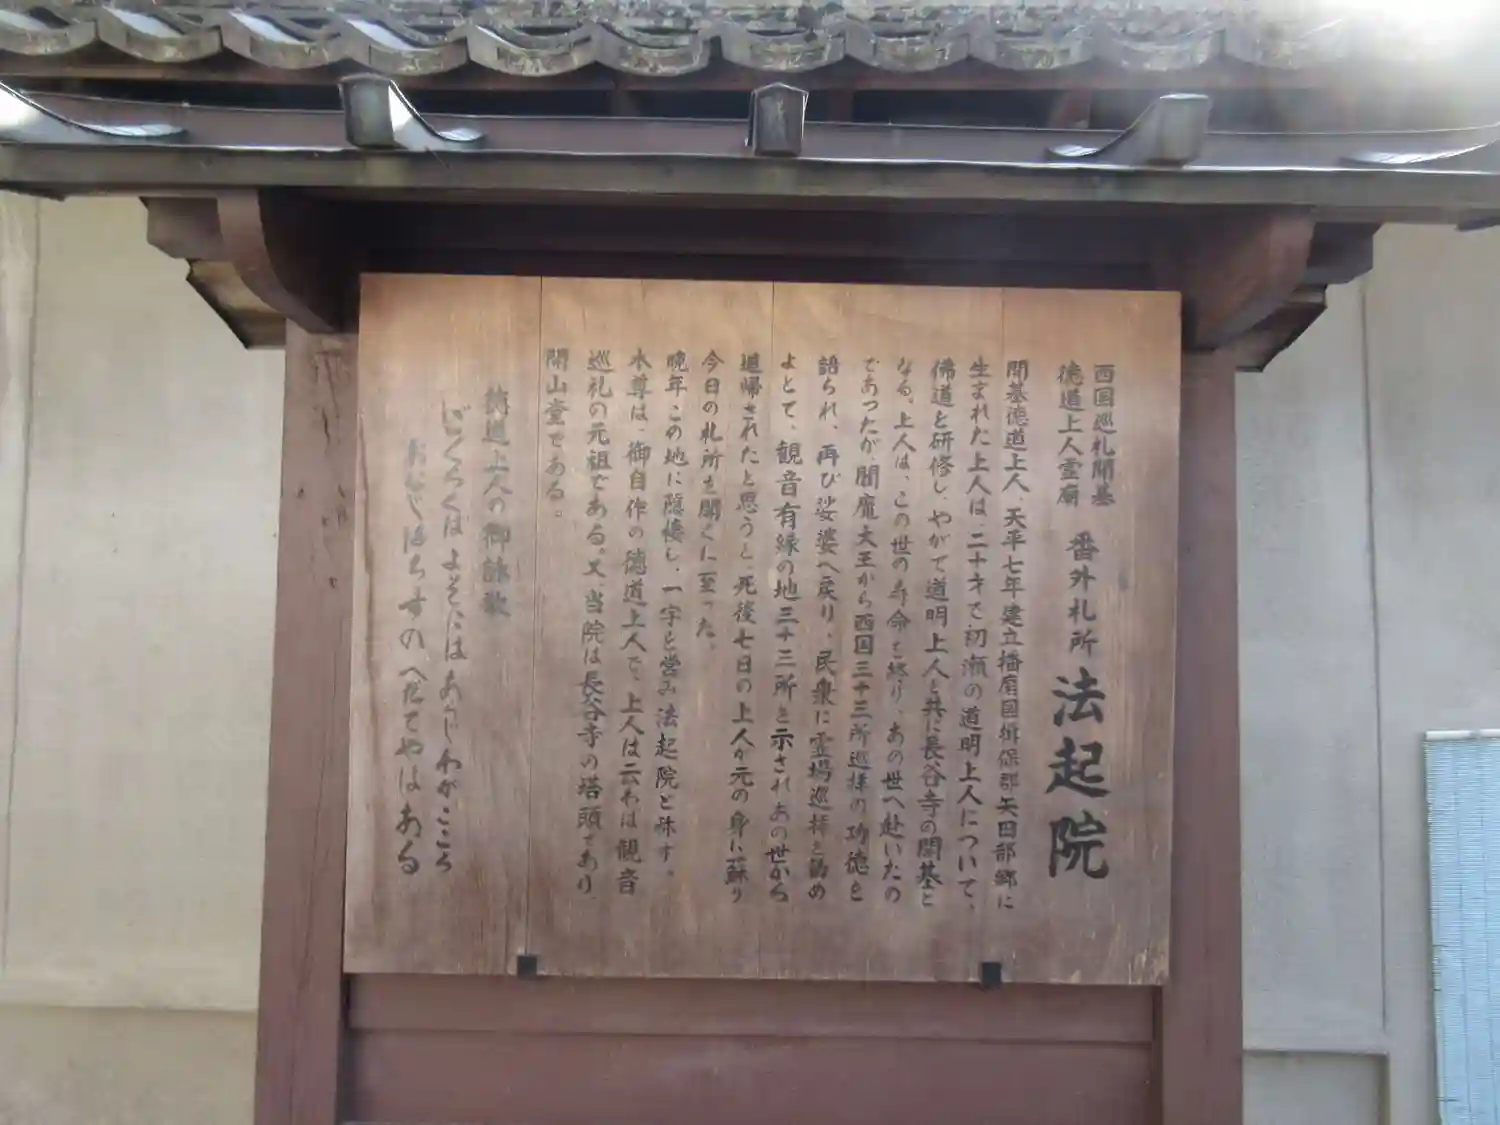 西国巡礼開基
徳道上人霊廟
番外札所
法起院
開基徳道上人、天平七年建立播磨国揖保郡矢田部郷に
生まれた上人は、二十才で初瀬の道明上人について、
佛道を研修し、やがて道明上人と共に長谷寺の開基と
なる。上人は、この世の寿命を終り、あの世へ赴いたの
であつたが、閻魔大王から西国三十三所巡拝の功徳を
語られ、再び娑婆へ戻り、民衆に霊場巡拝を
よとて、観音有縁の地三十三所を示されあの世から
帰されたと思うと、死後七日の上人が元の身に蘇り
今日の札所を開くに至った。
晩年この地に隠棲し、一宇を営み法起院と称す。
本尊は、御自作の徳道上人で、上人は云わば観音
巡礼の元祖である。又、当院は長谷寺の塔頭であり
開山堂である。
徳道上人の御詠歌
ごくらくはよそにはあらじわがこころ
おなじはちすのへだてやはある